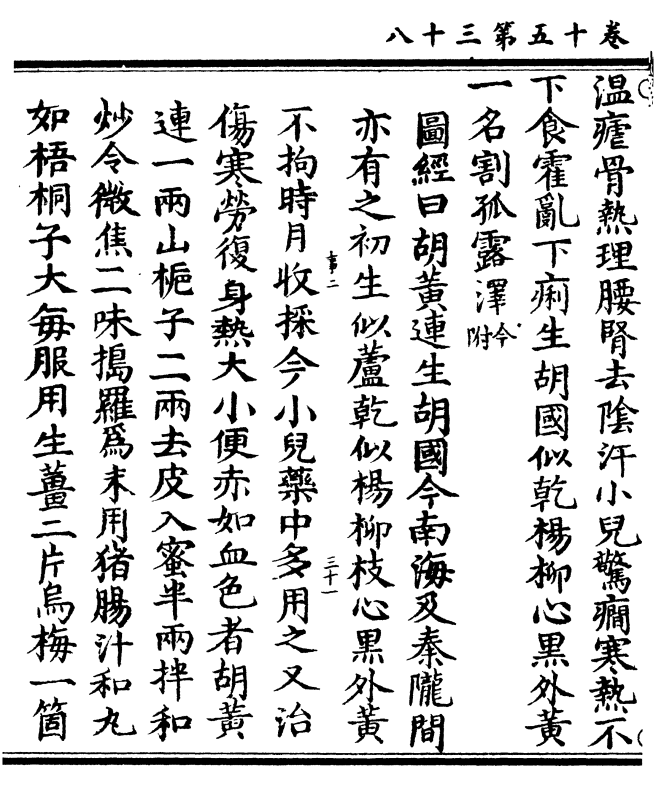 卷十五第三十八
温瘧骨熱理腰腎去陰汗小兒驚癇寒熱不
下食霍亂下痢生胡國似乾楊柳心黒外黃
一名割孤露澤今附
圖經曰胡黃連生胡國今南海及秦隴間
亦有之初生似蘆乾似楊柳枝心黒外黃
不拘時月收採今小兒藥中多用之又治
傷寒勞復身熱大小便赤如血色者胡黃
連一兩山梔子二兩去皮入蜜半兩拌和
炒令微焦二味搗羅爲末用猪腸汁和丸
如梧桐子大毎服用生薑二片烏梅一箇
三十一